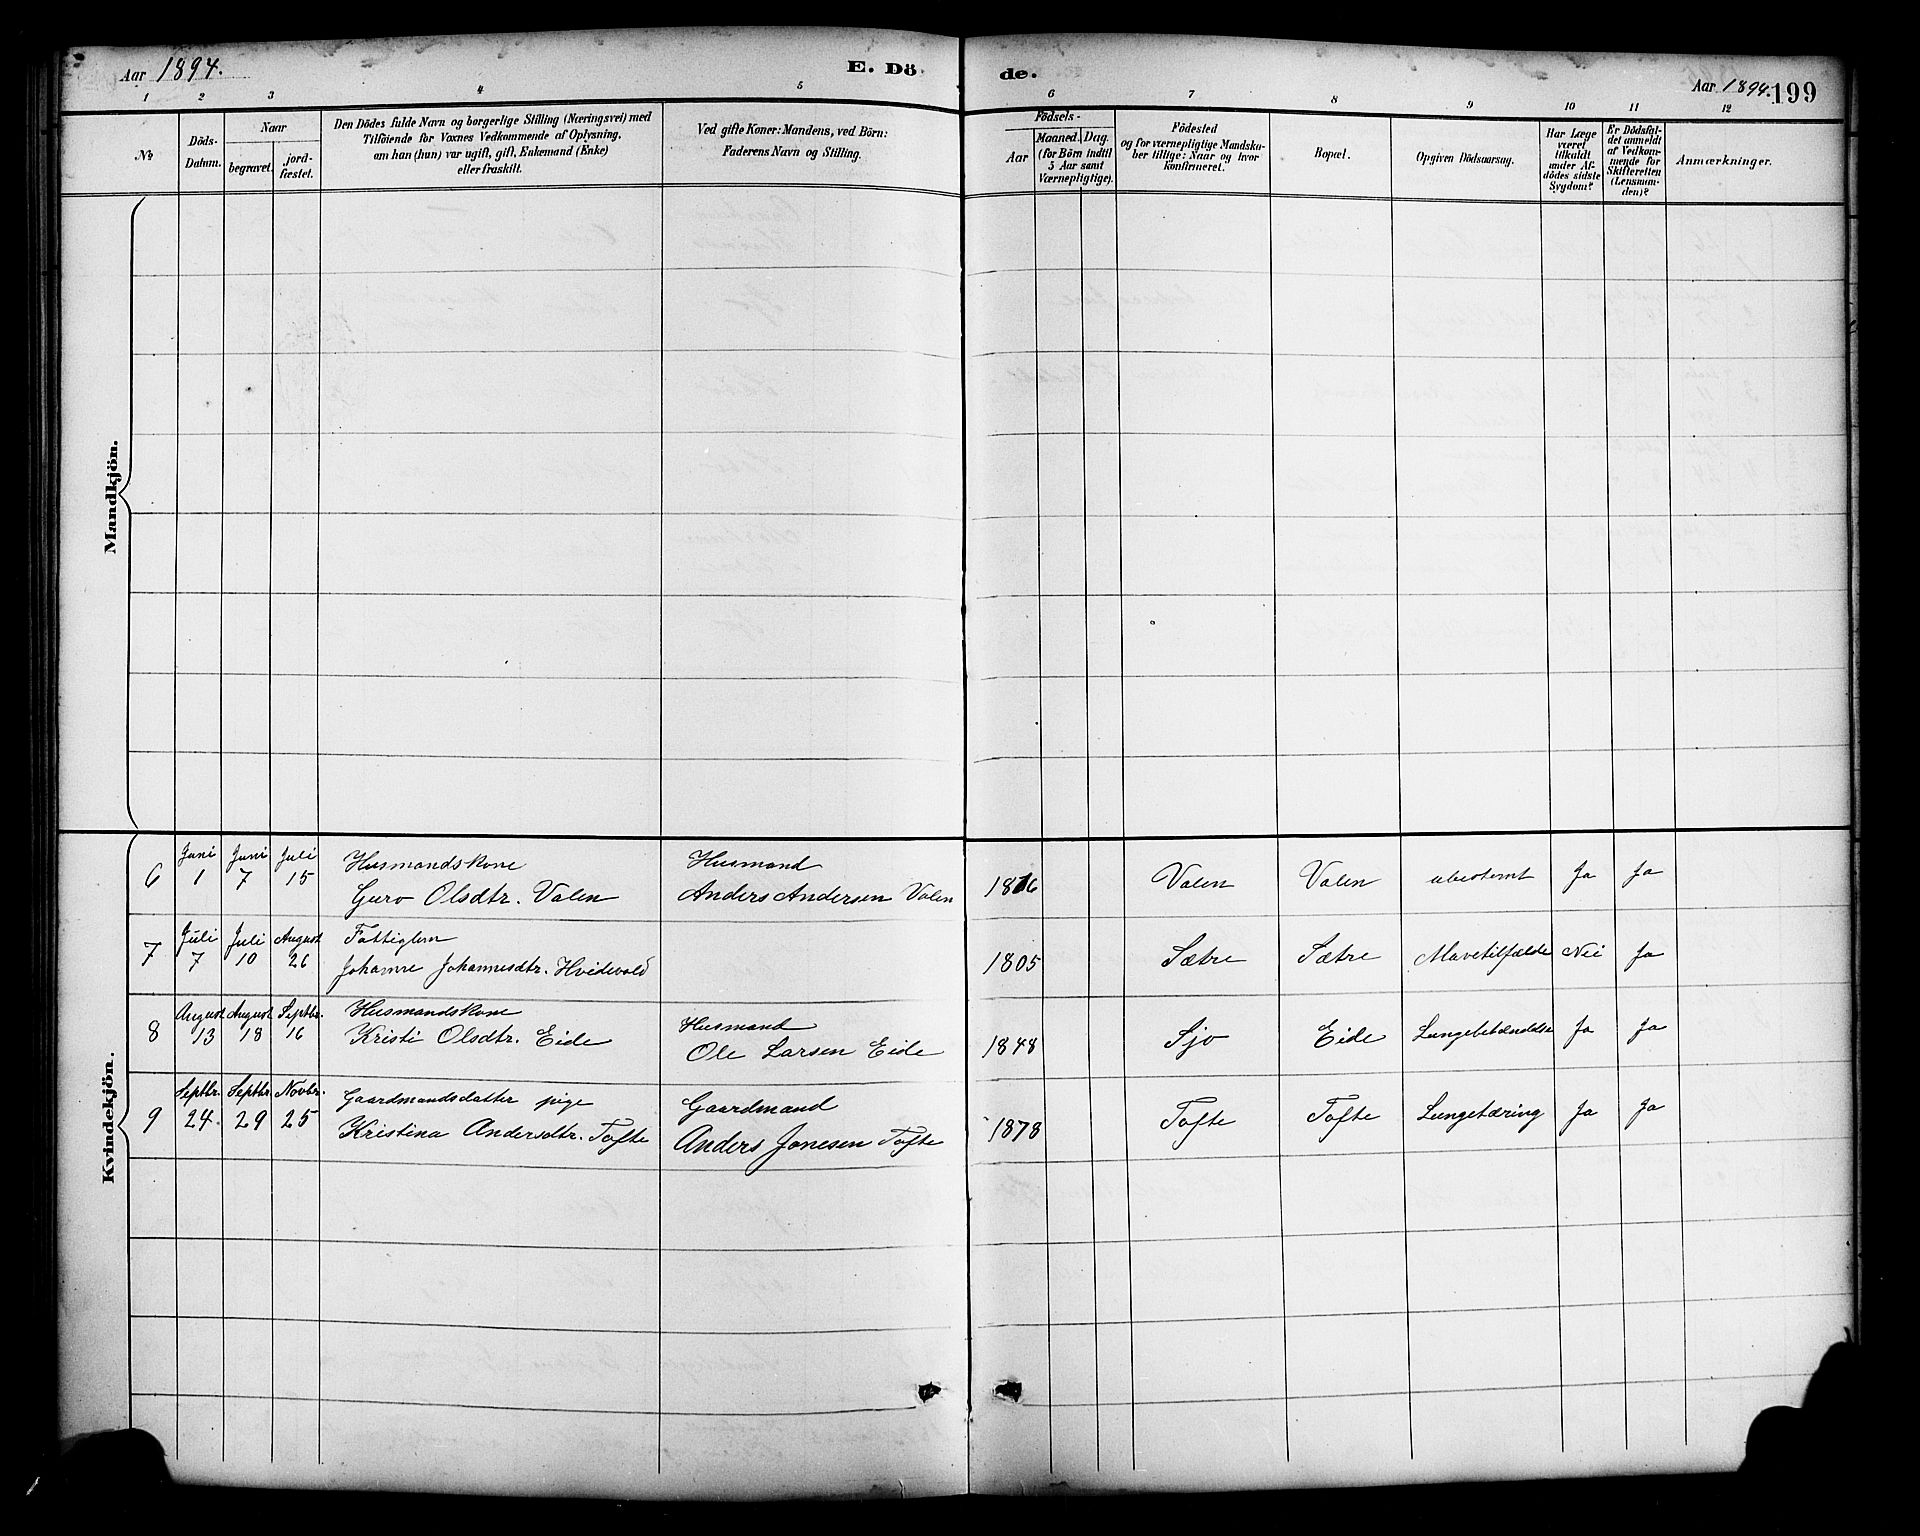 Aar 1894.
E. Dö
de.
Aar 1894. 199
1 2 3 4 5 6 7 8 9 10 11 12
№
Döds-
Datum.
Naar
begravet.
jord-
fæstet.
Den Dödes fulde Navn og borgerlige Stilling (Næringsvei) med
Tilföiende for Voxnes Vedkommende af Oplysning,
om han (hun) var ugift, gift, Enkemand (Enke)
eller fraskilt.
Ved gifte Koner: Mandens, ved Börn:
Faderens Navn og Stilling.
Födsels-
Aar
Maaned. Dag.
(for Börn indtil
5 Aar samt
Værnepligtige).
Födested
og for værnepligtige Mandska-
ber tillige: Naar og hvor
konfirmeret.
Bopæl.
Opgiven Dödsaarsag.
Har Læge
været
tilkaldt
under Af-
dödes sidste
Sygdom?
Er Dödsfal-
det anmeldt
af Vedkom-
mende for
Skifteretten
(Lensman-
den)?
Anmærkninger.
Mandkjön.
Kvindekjön.
Juni Juni Juli Husmandskone Husmand
6 1 7 15 Guro Olsdtr. Valen Anders Andersen Valen 1816 Valen Valen ubestemt Ja Ja
Juli Juli August Fattiglem
7 7 10 26 Johanne Johannesdtr. Hvidevold 1805 Sætre Sætre Mavetilfælde Nei Ja
August August Septbr. Husmandskone Husmand
8 13 18 16 Kristi Olsdtr. Eide Ole Larsen Eide 1848 Sjo Eide Lungebetændelse Ja Ja
Septbr. Septbr. Novbr. Gaardmandsdatter pige Gaardmand
9 24. 29 25 Kristina Andersdtr. Tofte Anders Jonesen Tofte 1878 Tofte Tofte Lungetæring Ja Ja